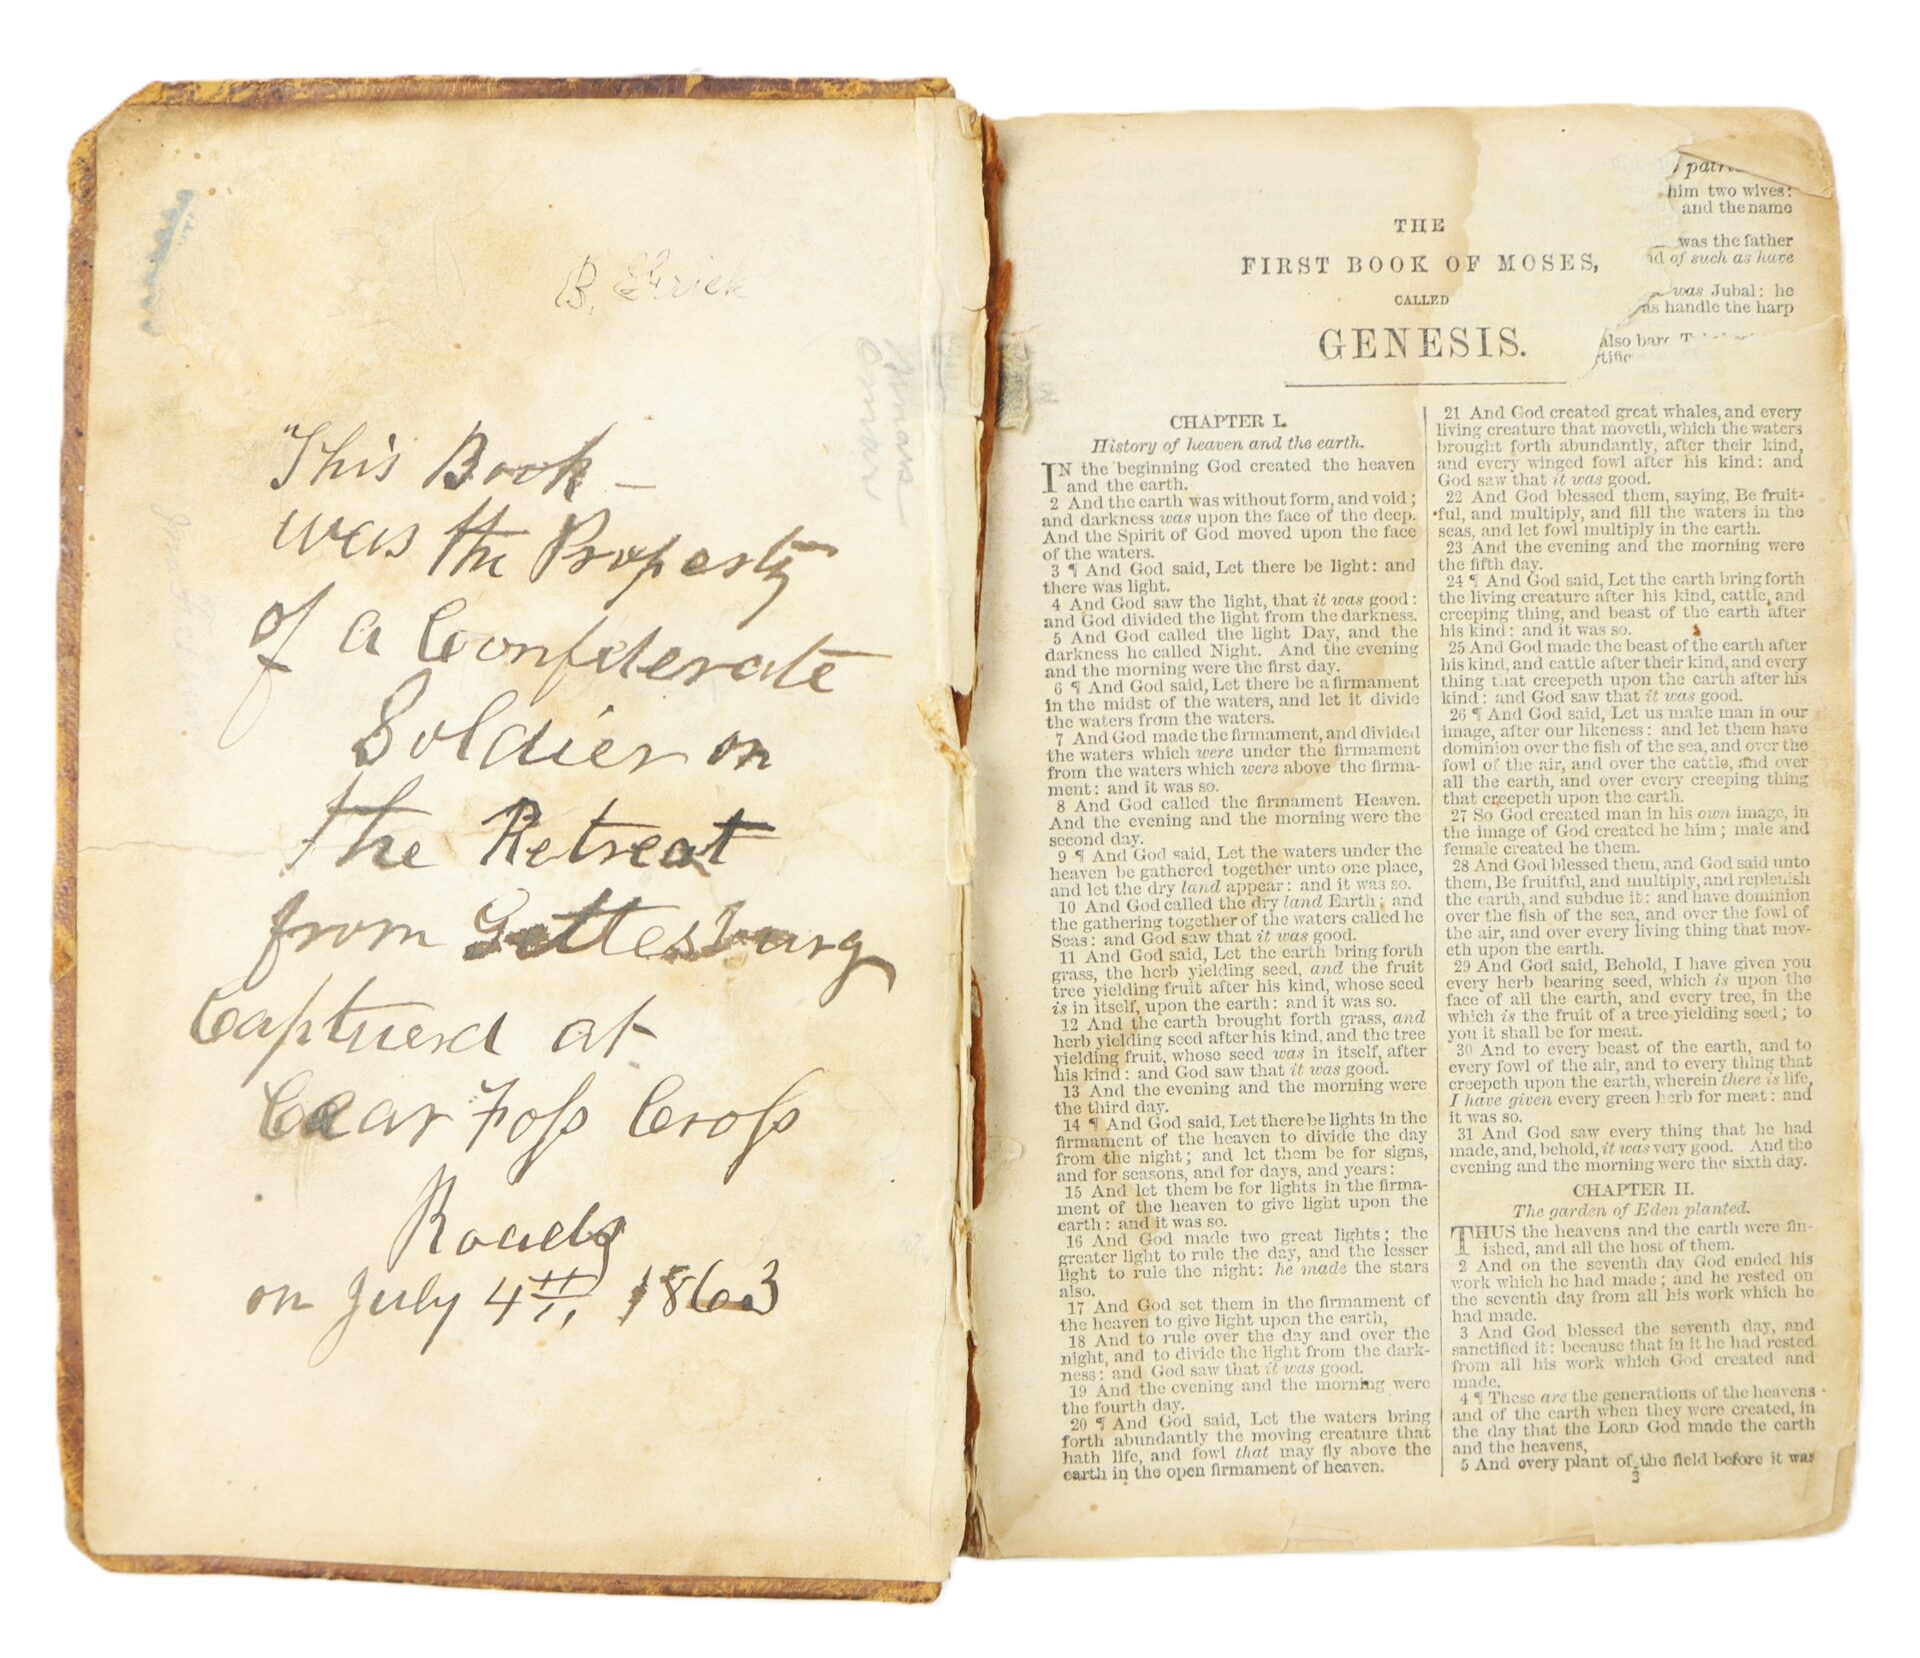 B. Frick
"This Book –
was the Property
of a Confederate
Soldier on
the Retreat
from Gettesburg
Captuerd at
Cear Foss Cross
Roads
on July 4th, 1863
THE
FIRST BOOK OF MOSES,
CALLED
GENESIS.
him two wives:
and the name
was the father
of such as have
was Jubal: he
as handle the harp
also bare
CHAPTER I.
History of heaven and the earth.
IN the beginning God created the heaven
and the earth.
2 And the earth was without form, and void;
and darkness was upon the face of the deep.
And the Spirit of God moved upon the face
of the waters.
3 ¶ And God said, Let there be light: and
there was light.
4 And God saw the light, that it was good:
and God divided the light from the darkness.
5 And God called the light Day, and the
darkness he called Night. And the evening
and the morning were the first day.
6 ¶ And God said, Let there be a firmament
in the midst of the waters, and let it divide
the waters from the waters.
7 And God made the firmament, and divided
the waters which were under the firmament
from the waters which were above the firma-
ment: and it was so.
8 And God called the firmament Heaven.
And the evening and the morning were the
second day.
9 ¶ And God said, Let the waters under the
heaven be gathered together unto one place,
and let the dry land appear: and it was so.
10 And God called the dry land Earth; and
the gathering together of the waters called he
Seas: and God saw that it was good.
11 And God said, Let the earth bring forth
grass, the herb yielding seed, and the fruit
tree yielding fruit after his kind, whose seed
is in itself, upon the earth: and it was so.
12 And the earth brought forth grass, and
herb yielding seed after his kind, and the tree
yielding fruit, whose seed was in itself, after
his kind: and God saw that it was good.
13 And the evening and the morning were
the third day.
14 ¶ And God said, Let there be lights in the
firmament of the heaven to divide the day
from the night; and let them be for signs,
and for seasons, and for days, and years:
15 And let them be for lights in the firma-
ment of the heaven to give light upon the
earth: and it was so.
16 And God made two great lights; the
greater light to rule the day, and the lesser
light to rule the night: he made the stars
also.
17 And God set them in the firmament of
the heaven to give light upon the earth,
18 And to rule over the day and over the
night, and to divide the light from the dark-
ness: and God saw that it was good.
19 And the evening and the morning were
the fourth day.
20 ¶ And God said, Let the waters bring
forth abundantly the moving creature that
hath life, and fowl that may fly above the
earth in the open firmament of heaven.
21 And God created great whales, and every
living creature that moveth, which the waters
brought forth abundantly, after their kind,
and every winged fowl after his kind: and
God saw that it was good.
22 And God blessed them, saying, Be fruit-
ful, and multiply, and fill the waters in the
seas, and let fowl multiply in the earth.
23 And the evening and the morning were
the fifth day.
24 ¶ And God said, Let the earth bring forth
the living creature after his kind, cattle, and
creeping thing, and beast of the earth after
his kind: and it was so.
25 And God made the beast of the earth after
his kind, and cattle after their kind, and every
thing that creepeth upon the earth after his
kind: and God saw that it was good.
26 ¶ And God said, Let us make man in our
image, after our likeness: and let them have
dominion over the fish of the sea, and over the
fowl of the air, and over the cattle, and over
all the earth, and over every creeping thing
that creepeth upon the earth.
27 So God created man in his own image, in
the image of God created he him; male and
female created he them.
28 And God blessed them, and God said unto
them, Be fruitful, and multiply, and replenish
the earth, and subdue it: and have dominion
over the fish of the sea, and over the fowl of
the air, and over every living thing that mov-
eth upon the earth.
29 And God said, Behold, I have given you
every herb bearing seed, which is upon the
face of all the earth, and every tree, in the
which is the fruit of a tree yielding seed; to
you it shall be for meat.
30 And to every beast of the earth, and to
every fowl of the air, and to every thing that
creepeth upon the earth, wherein there is life,
I have given every green herb for meat: and
it was so.
31 And God saw every thing that he had
made, and, behold, it was very good. And the
evening and the morning were the sixth day.
CHAPTER II.
The garden of Eden planted.
THUS the heavens and the earth were fin-
ished, and all the host of them.
2 And on the seventh day God ended his
work which he had made; and he rested on
the seventh day from all his work which he
had made.
3 And God blessed the seventh day, and
sanctified it: because that in it he had rested
from all his work which God created and
made.
4 ¶ These are the generations of the heavens
and of the earth when they were created, in
the day that the LORD God made the earth
and the heavens,
5 And every plant of the field before it was
3